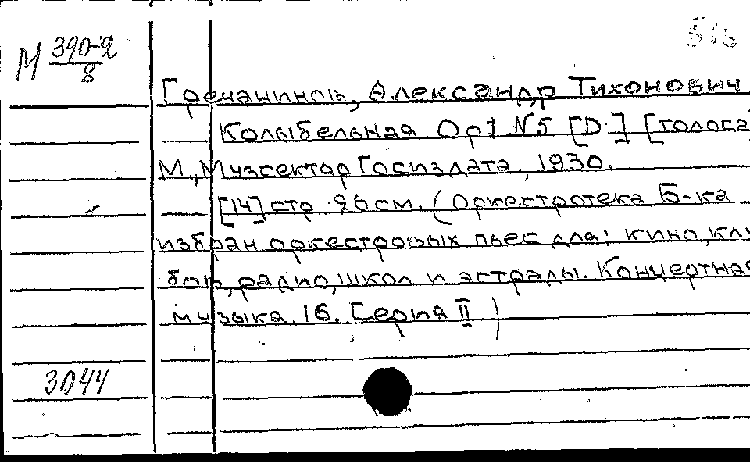 М 390-2
8
Гречанинов, Александр Тихонович
Колыбельная Op1 N5 [D.] [голоса
М., Музсектор Госиздата, 1930.
[14] стр. 26 см. (Оркестротека Б-ка
избран оркестровых пьес для: кино, клу
бов, радио, школ и эстрады. Концертная
музыка 16. Серия II)
3044